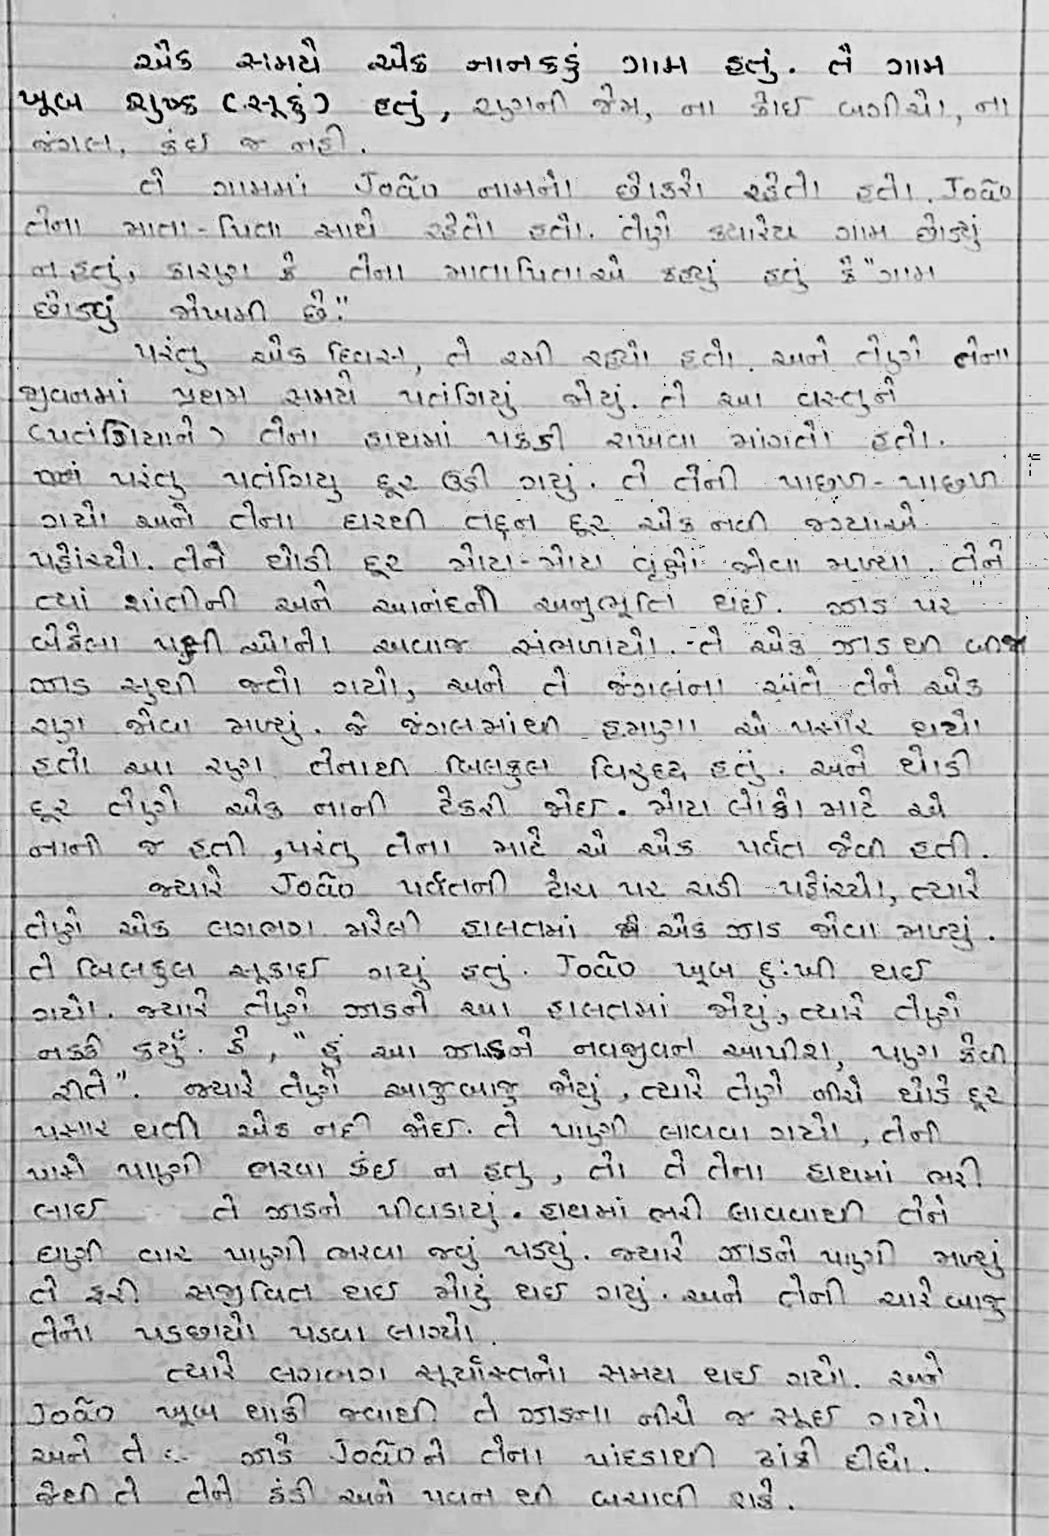 એક સમયે એક નાનકડું ગામ હતું. તે ગામ
ખૂબ શુષ્ક (સૂકું) હતું, રણની જેમ, ના કોઈ બગીચો, ના
જંગલ, કંઈ જ નહી.
તે ગામમાં João નામનો છોકરો રહેતો હતો. João
તેના માતા-પિતા સાથે રહેતો હતો. તેણે ક્યારેય ગામ છોડ્યું
ન હતું, કારણ કે તેના માતાપિતાએ કહ્યું હતું કે "ગામ
છોડવું જોખમી છે."
પરંતુ એક દિવસ, તે રમી રહ્યો હતો. અને તેણે તેના
જીવનમાં પ્રથમ સમયે પતંગિયું જોયું. તે આ વસ્તુને
(પતંગિયાને) તેના હાથમાં પકડી રાખવા માંગતો હતો.
પરંતુ પતંગિયુ દૂર ઉડી ગયું. તે તેની પાછળ-પાછળ
ગયો અને તેના ઘરથી તદ્દન દૂર એક નવી જગ્યાએ
પહોંચ્યો. તેને થોડી દૂર મોટા-મોટા વૃક્ષો જોવા મળ્યા. તેને
ત્યાં શાંતીની અને આનંદની અનુભૂતિ થઈ. ઝાડ પર
બેઠેલા પક્ષીઓનો અવાજ સંભળાયો. તે એક ઝાડથી બીજા
ઝાડ સુધી જતો ગયો, અને તે જંગલના અંતે તેને એક
રણ જોવા મળ્યું. જે જંગલમાંથી હમણા એ પસાર થયો
હતો આ રણ તેનાથી બિલકુલ વિરુદ્ધ હતું. અને થોડી
દૂર તેણે એક નાની ટેકરી જોઈ. મોટા લોકો માટે એ
નાની જ હતી, પરંતુ તેના માટે એ એક પર્વત જેવી હતી.
જ્યારે João પર્વતની ટોચ પર ચડી પહોંચ્યો, ત્યારે
તેણે એક લગભગ મરેલી હાલતમાં એક ઝાડ જોવા મળ્યું.
તે બિલકુલ સૂકાઈ ગયું હતું. João ખૂબ દુઃખી થઈ
ગયો. જ્યારે તેણે ઝાડને આ હાલતમાં જોયું, ત્યારે તેણે
નક્કી કર્યું. કે, "હું આ ઝાડને નવજીવન આપીશ, પણ કેવી
રીતે". જ્યારે તેણે આજુબાજુ જોયું, ત્યારે તેણે નીચે થોડે દૂર
પસાર થતી એક નદી જોઈ. તે પાણી લાવવા ગયો, તેની
પાસે પાણી ભરવા કંઈ ન હતુ, તો તે તેના હાથમાં ભરી
લાઈ તે ઝાડને પીવડાયું. હાથમાં ભરી લાવવાથી તેને
ઘણી વાર પાણી ભરવા જવું પડ્યું. જ્યારે ઝાડને પાણી મળ્યું
તે ફરી સજીવિત થઈ મોટું થઈ ગયું. અને તેની ચારે બાજુ
તેનો પડછાયો પડવા લાગ્યો.
ત્યારે લગભગ સૂર્યાસ્તનો સમય થઈ ગયો. અને
João ખૂબ થાકી જવાથી તે ઝાડના નીચે જ સૂઈ ગયો
અને તે ઝાડે Joãoને તેના પાંદડાથી ઢાંકી દીધો.
જેથી તે તેને ઠંડી અને પવન થી બચાવી શકે.